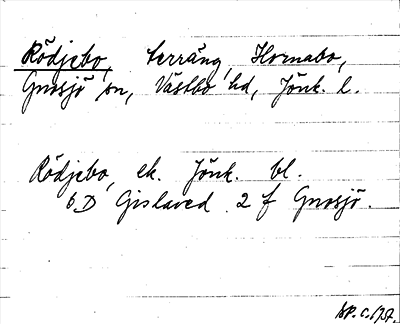 Rödjebo, terräng, Hornabo,
Gnosjö sn, Västbo hd, Jönk. l.
Rödjebo, ek. Jönk. bl.
6D Gislaved 2 f Gnosjö.